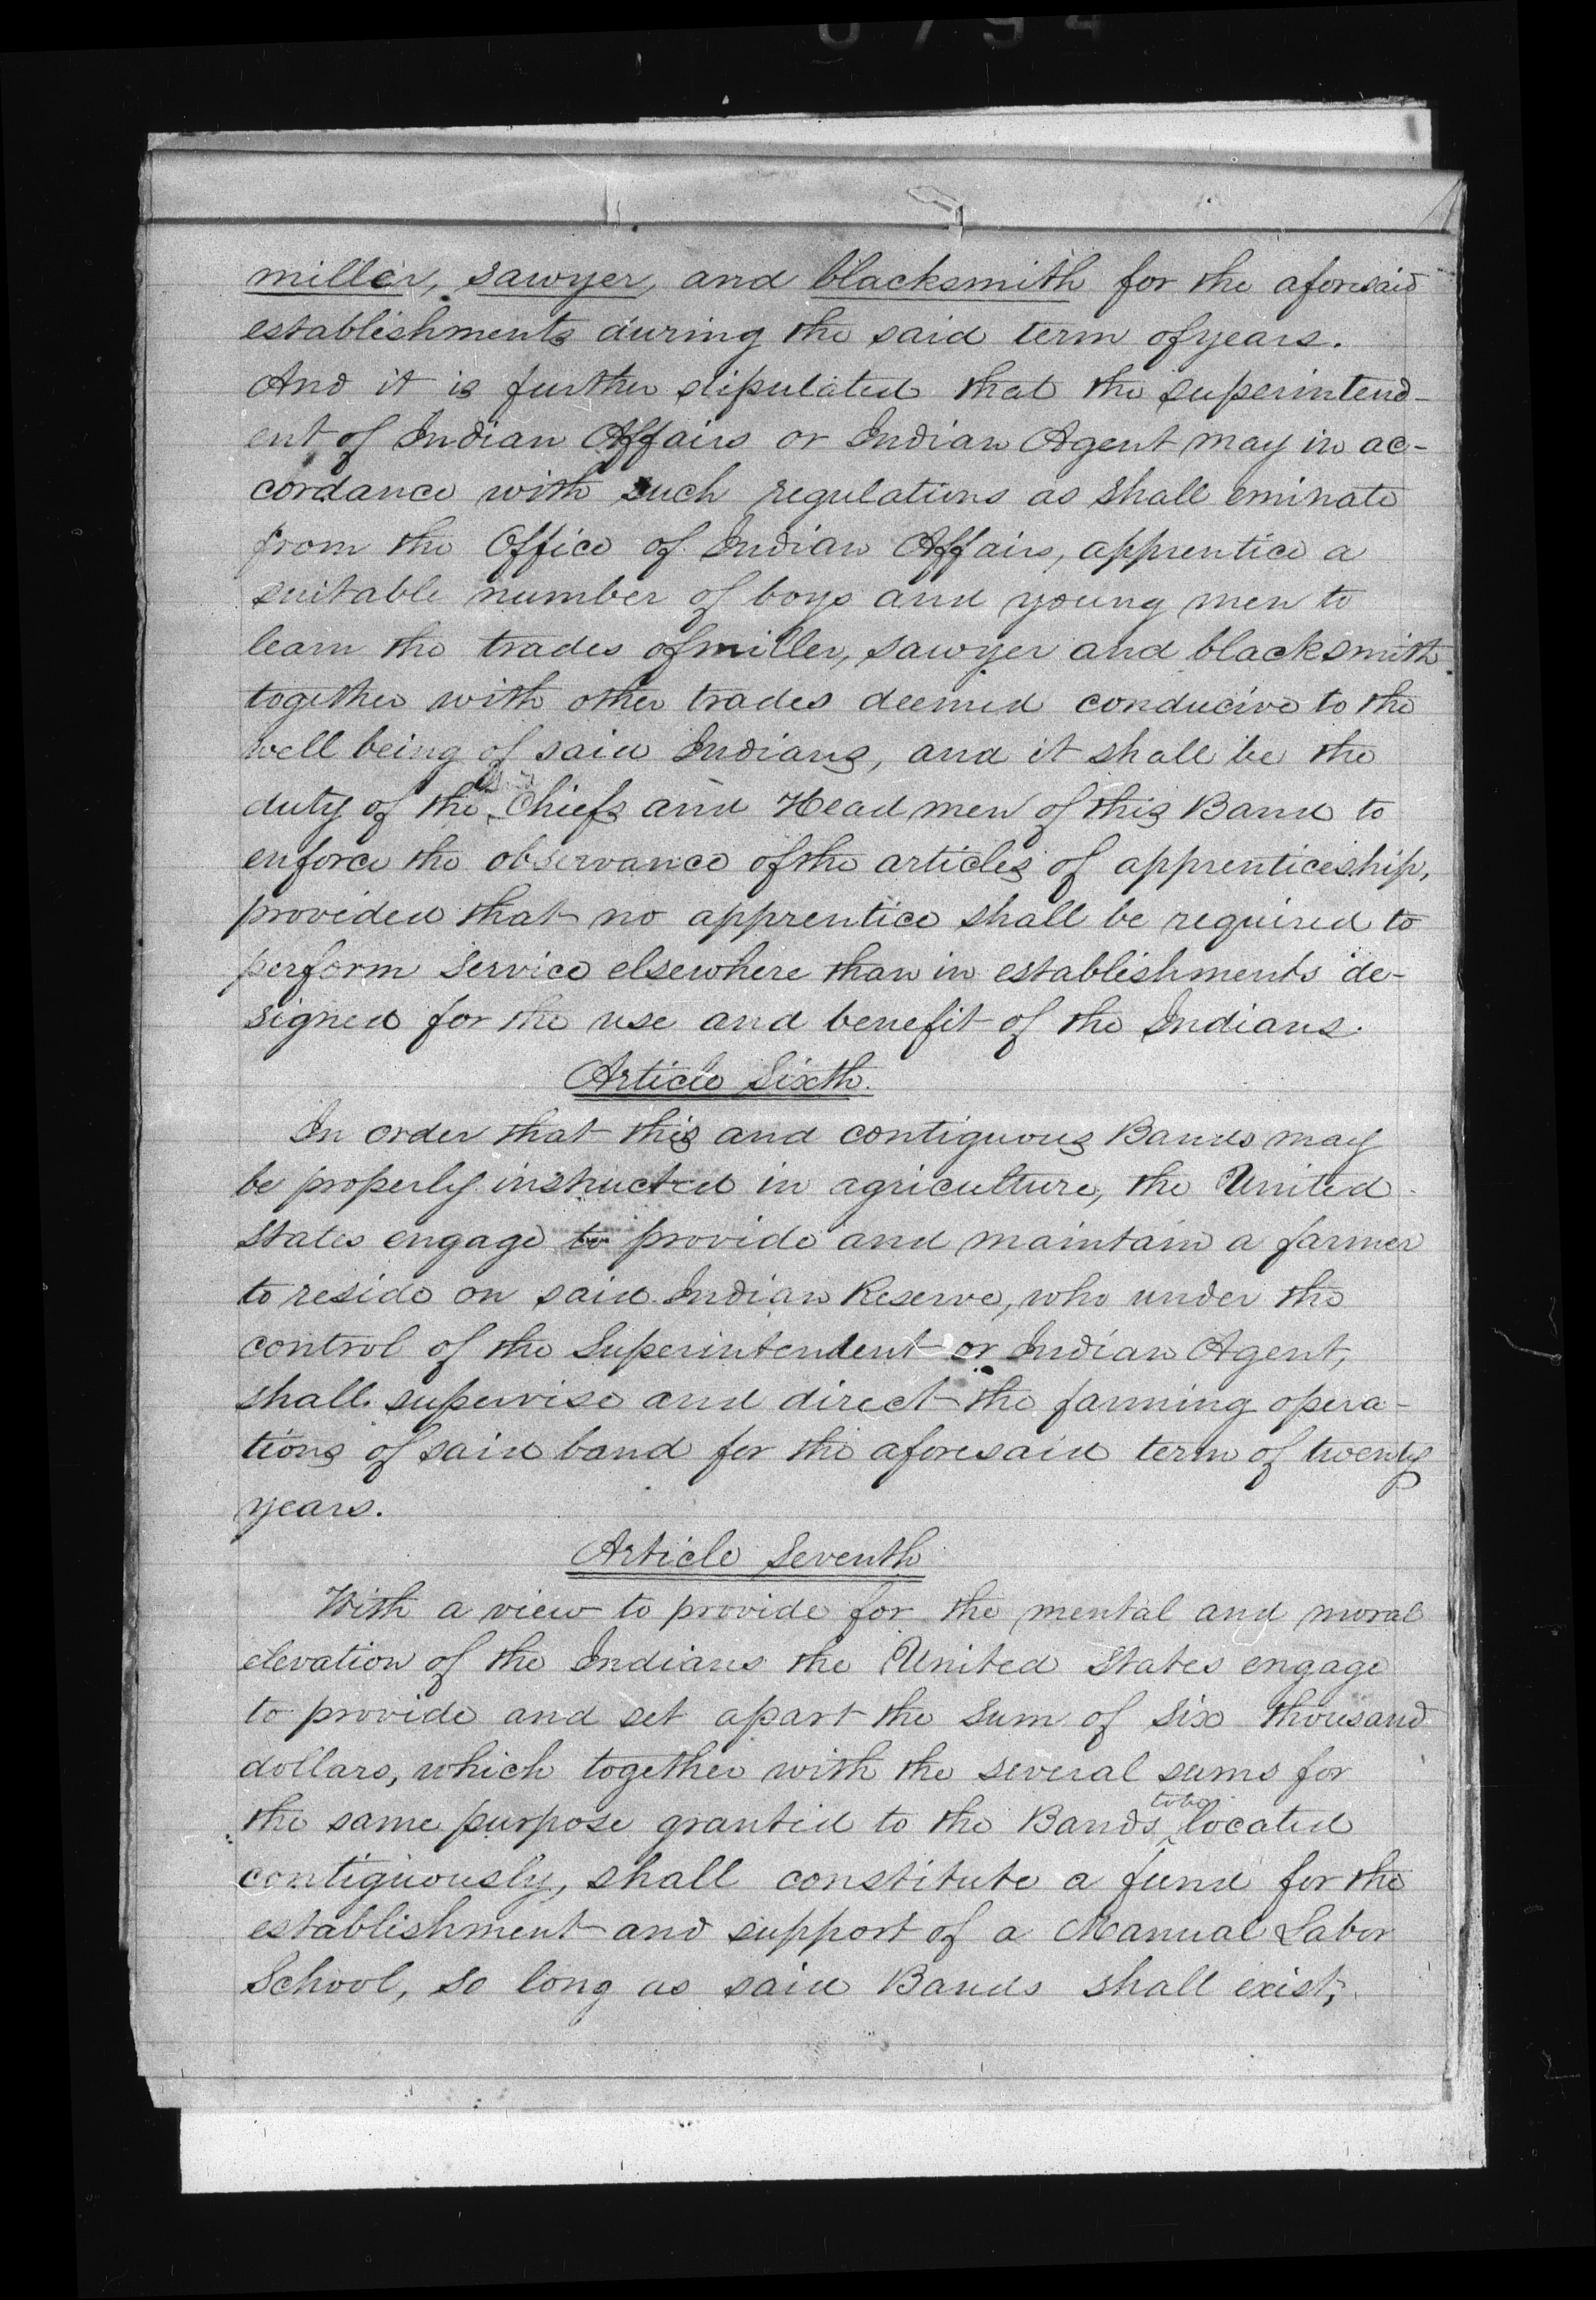 miller, sawyer, and blacksmith for the aforesaid
establishments during the said term of years.
And it is further stipulated that the superintend-
ent of Indian Affairs or Indian Agent may in ac-
cordance with such regulations as shall eminate
from the Office of Indian Affairs, apprentice a
suitable number of boys and young men to
learn the trades of miller, sawyer and blacksmith
together with other trades deemed conducive to the
well being of said Indians, and it shall be the
duty of the Chiefs and Head men of this Band to
enforce the observance of the articles of apprenticeship,
provided that no apprentice shall be required to
perform service elsewhere than in establishments de-
signed for the use and benefit of the Indians.
Article Sixth.
In order that this and contiguous Bands may
be properly instructed in agriculture, the United
States engage to provide and maintain a farmer
to reside on said Indian Reserve, who under the
control of the Superintendent or Indian Agent,
shall supervise and direct the farming opera-
tions of said band for the aforesaid term of twenty
years.
Article Seventh
With a view to provide for the mental and moral
elevation of the Indians the United States engage
to provide and set apart the sum of six thousand
dollars, which together with the several sums for
to be
the same purpose granted to the Bands located
contiguously, shall constitute a fund for the
establishment and support of a Manual Labor
School, so long as said Bands shall exist,